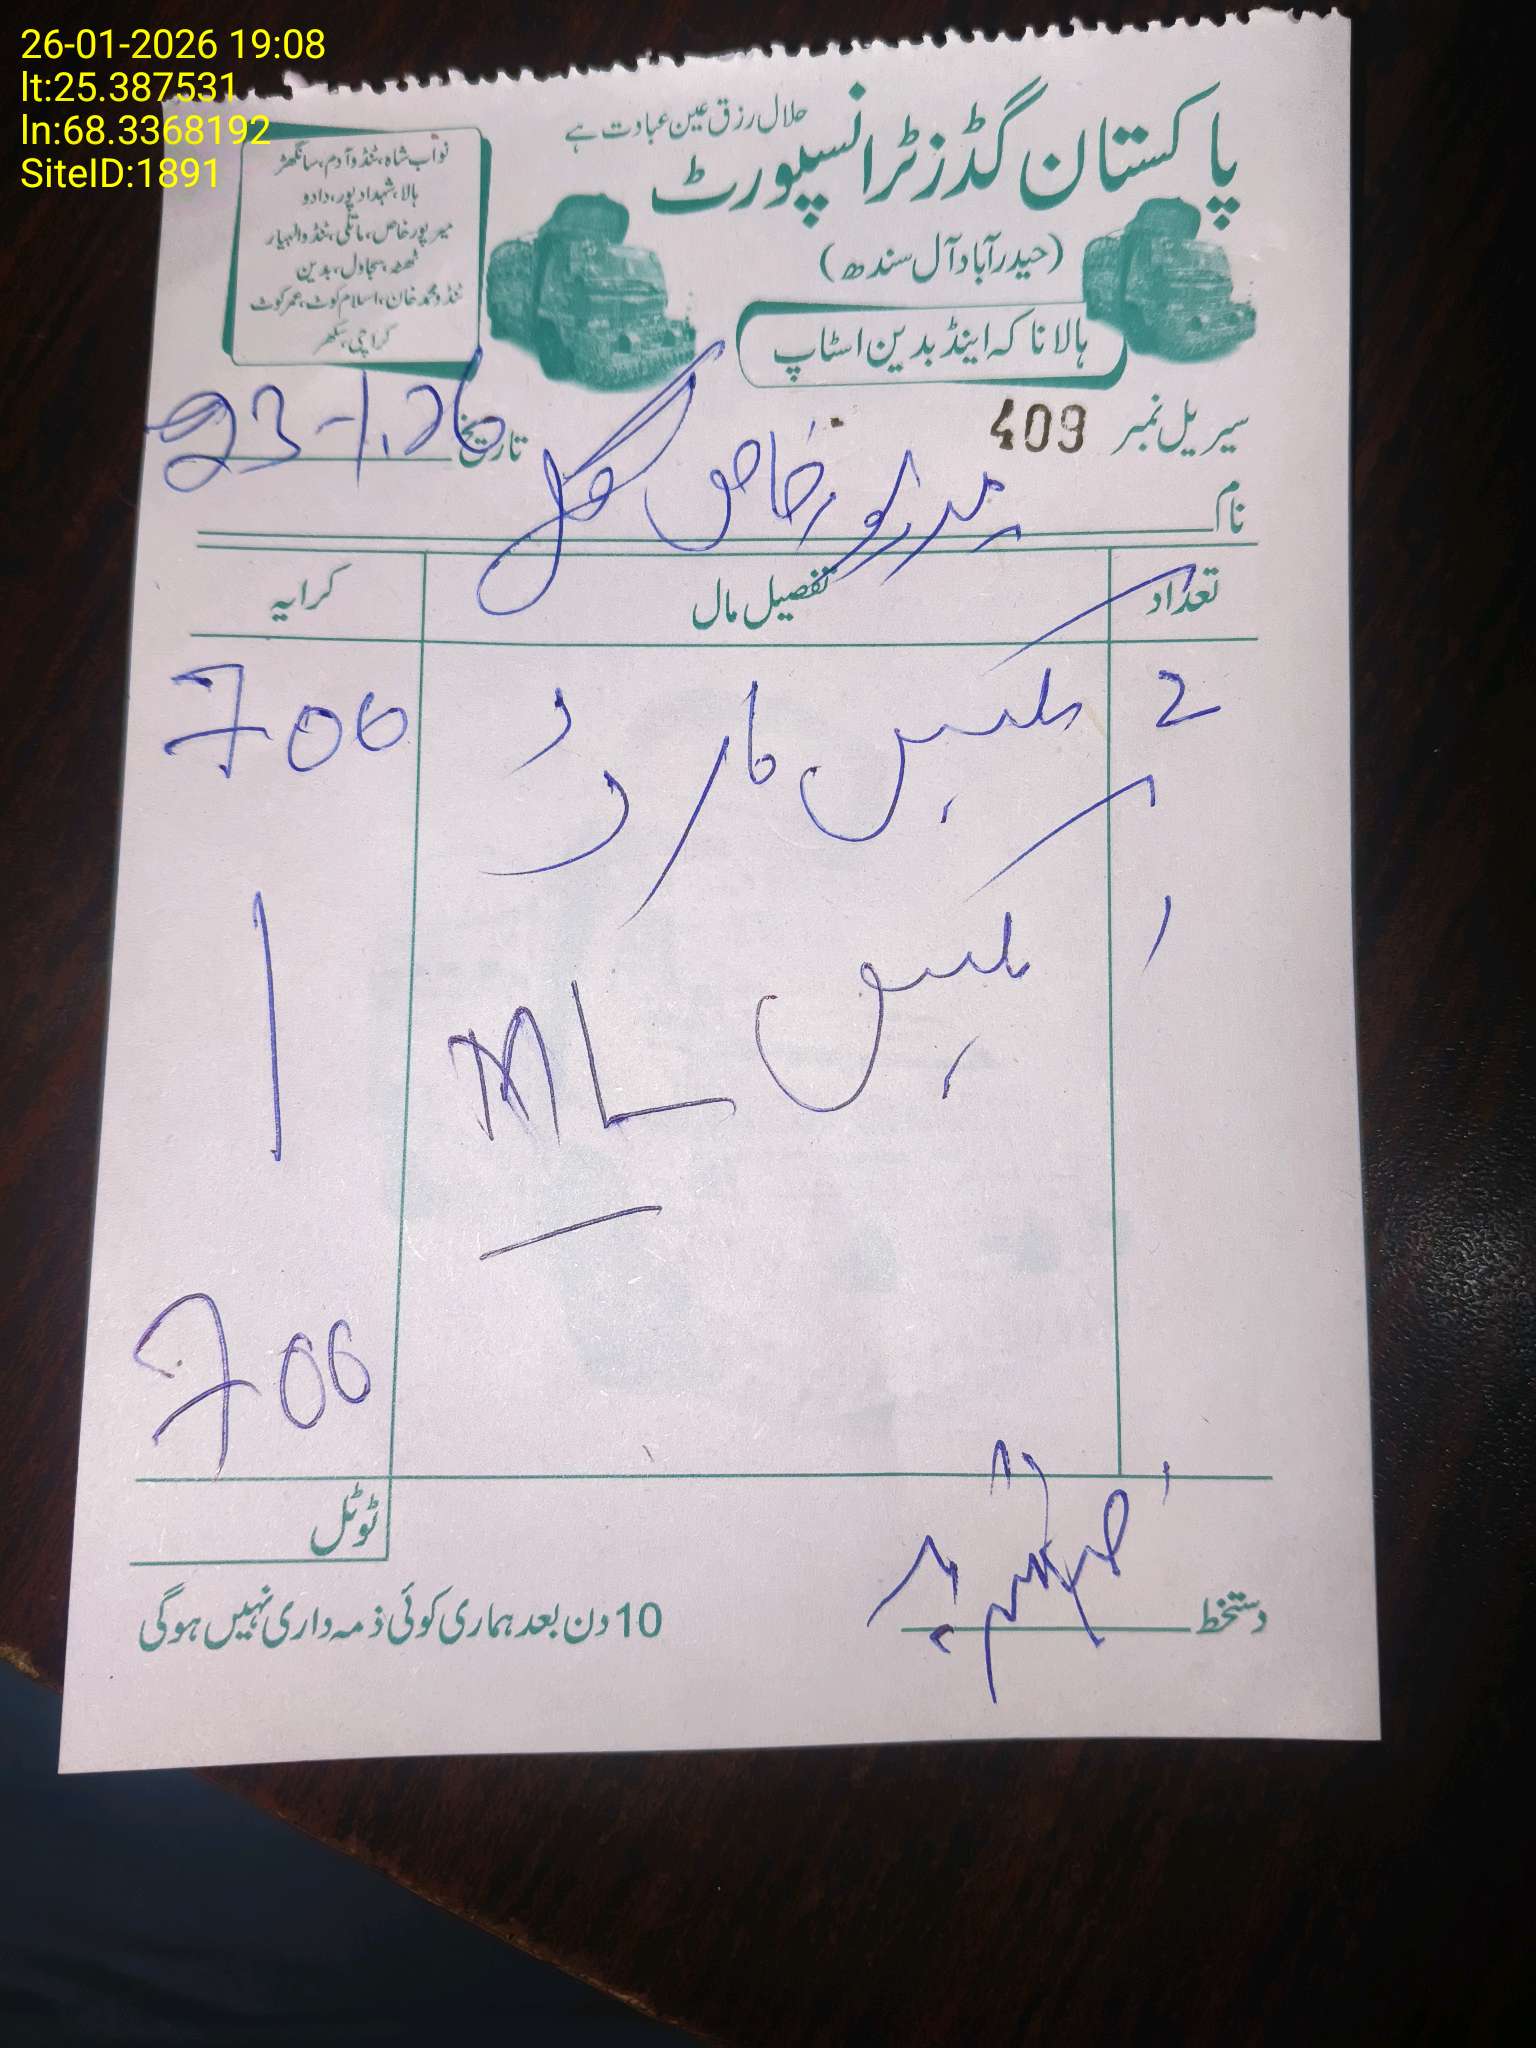 26-01-2026 19:08
lt:25.387531
ln:68.3368192
SiteID:1891
حلال رزق عین عبادت ہے
پاکستان گڈز ٹرانسپورٹ
(حیدرآباد آل سندھ)
ہالا ناکہ اینڈ بدین اسٹاپ
نواب شاہ، ٹنڈوآدم، سانگھڑ
ہالا، شہدادپور، دادو
میرپورخاص، ماتلی، ٹنڈوالہیار
ٹھٹھہ، سجاول، بدین
ٹنڈومحمدخان، اسلام کوٹ، عمرکوٹ
کراچی، سکھر
سیریل نمبر 409 تاریخ 23-1.26
نام میرپورخاص
تعداد تفصیل مال کرایہ
2 بکس کارڈ 700
1 بکس ML
700
ٹوٹل
دستخط
10 دن بعد ہماری کوئی ذمہ داری نہیں ہوگی